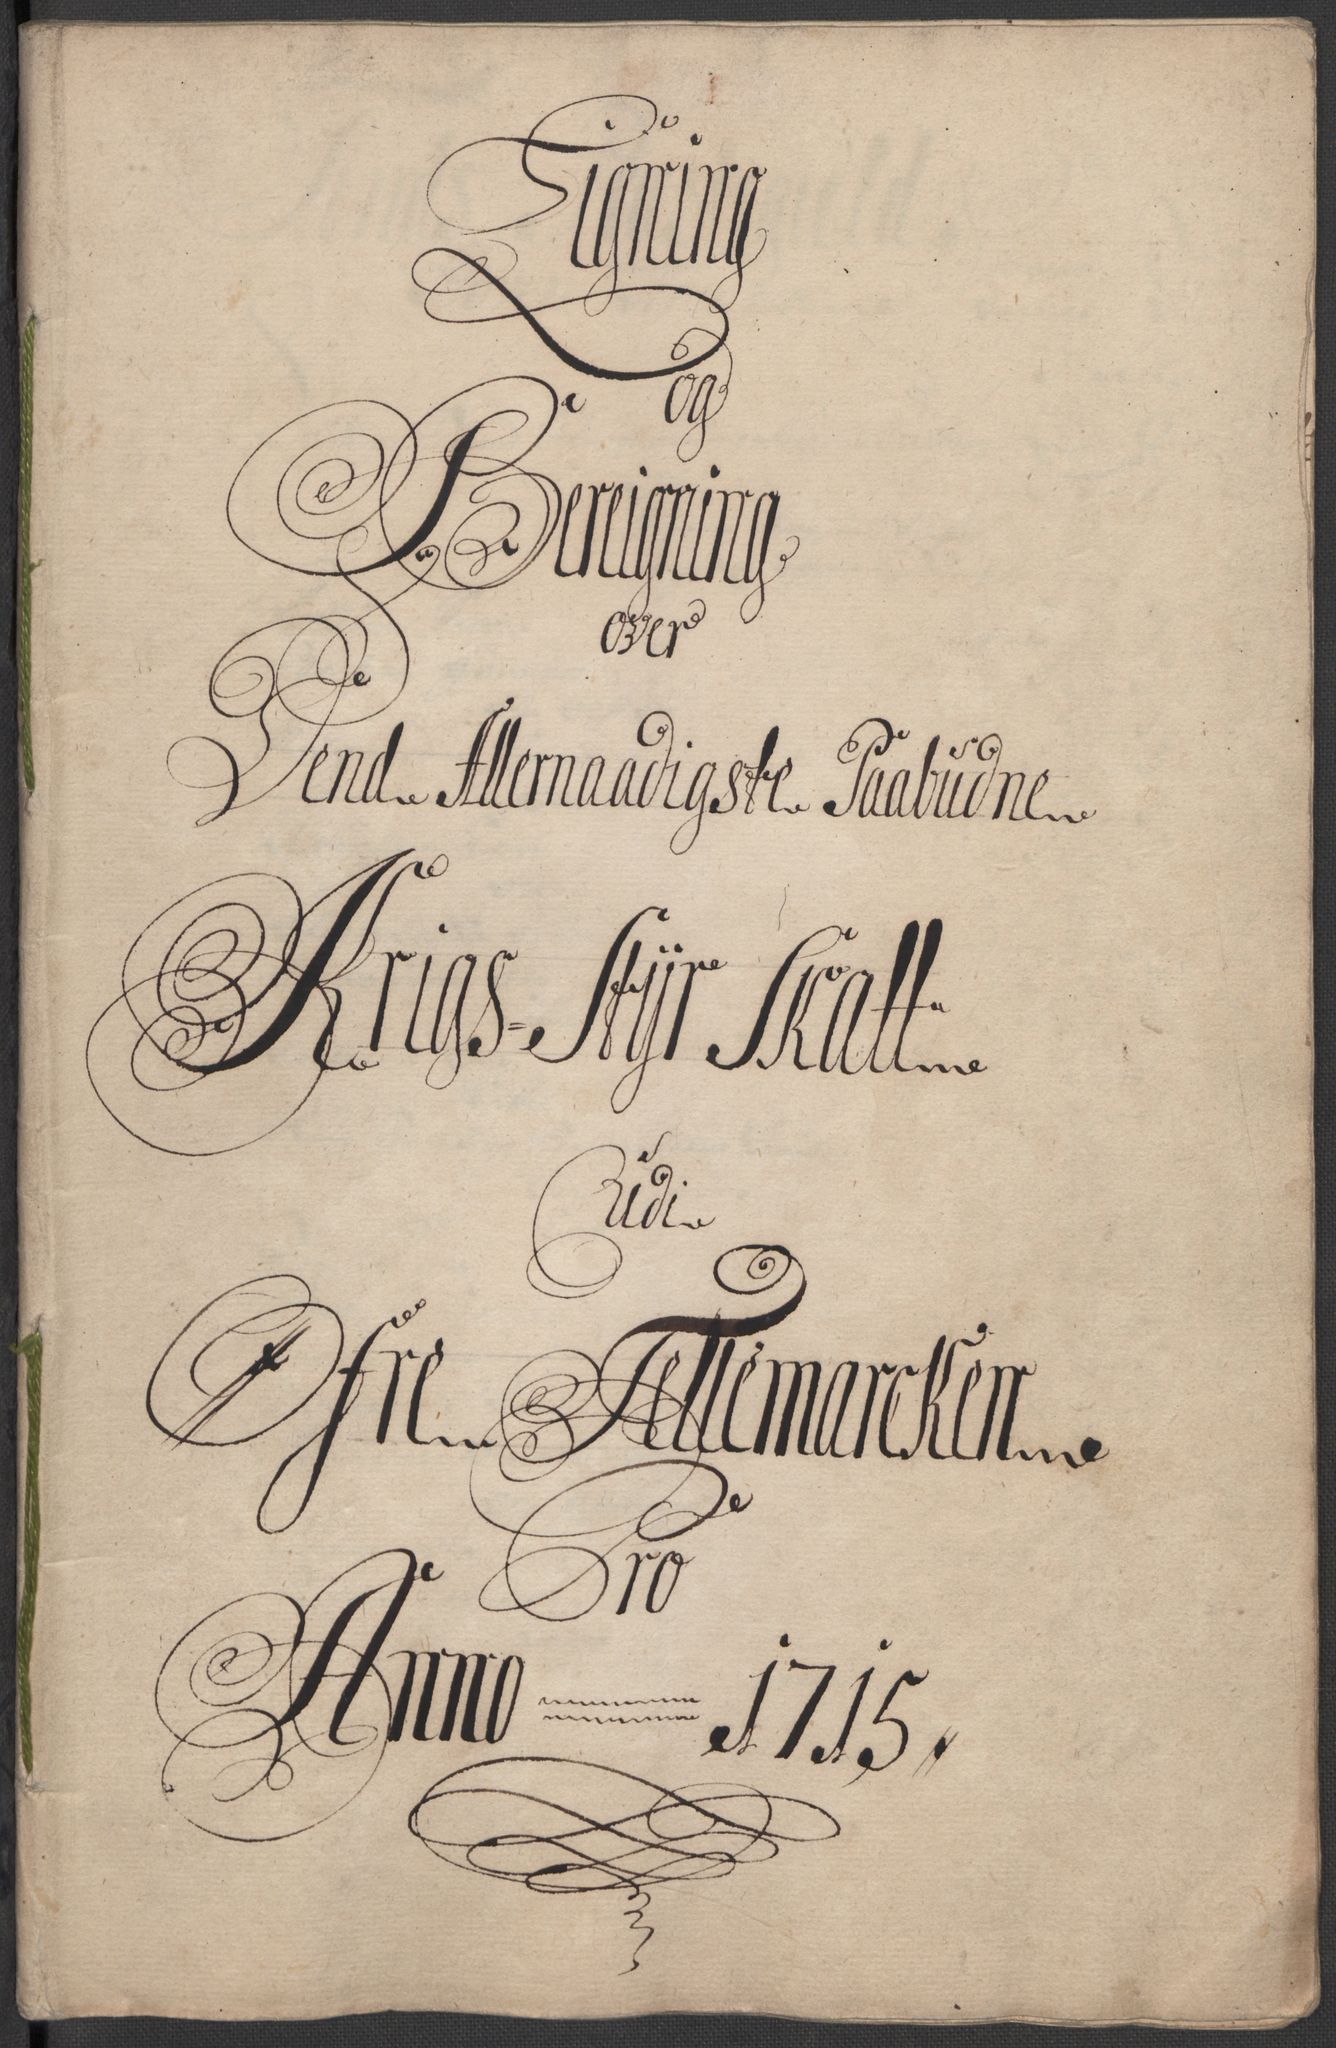 Ligning
og
Bereigning
over
Dend Allernaadigste Paabudne
Krigs-Styr Skatt
Udi
Øfre Tellemarcken
Pro
Anno 1715